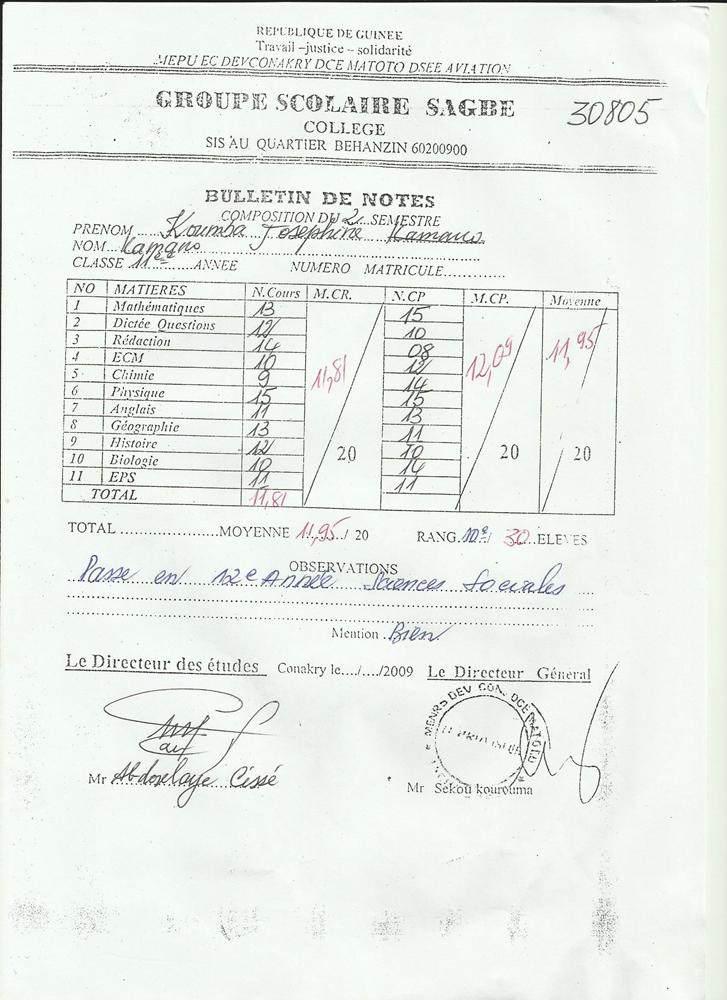 REPUBLIQUE DE GUINEE
Travail –justice – solidarité
MEPU EC DEVCONAKRY DCE MATOTO DSEE AVIATION
GROUPE SCOLAIRE SAGBE
30805
COLLEGE
SIS AU QUARTIER BEHANZIN 60200900
BULLETIN DE NOTES
COMPOSITION DU 2 SEMESTRE
PRENOM Koumba Josephine Kamano
NOM Kamano
CLASSE 11è ANNÉE NUMERO MATRICULE
NO MATIERES N.Cours M.CR. N.CP M.CP. Moyenne
1 Mathématiques 13 15
2 Dictée Questions 12 10
3 Rédaction 14 08
4 ECM 10 12
5 Chimie 9 14
6 Physique 15 15
7 Anglais 11 13
8 Géographie 13 11
9 Histoire 12 10
10 Biologie 10 14
11 EPS 11 11
11,81 / 20 12,09 / 20 11,95 / 20
TOTAL 11,81
TOTAL MOYENNE 11,95 / 20 RANG 10e/ 30 ELEVES
OBSERVATIONS
Passe en 12e Année Sciences Sociales
Mention Bien
Le Directeur des études Conakry le..../..../2009 Le Directeur Général
MENRS DEV CON. DCE MATOTO
Mr Abdoulaye Cissé
Mr Sékou kourouma